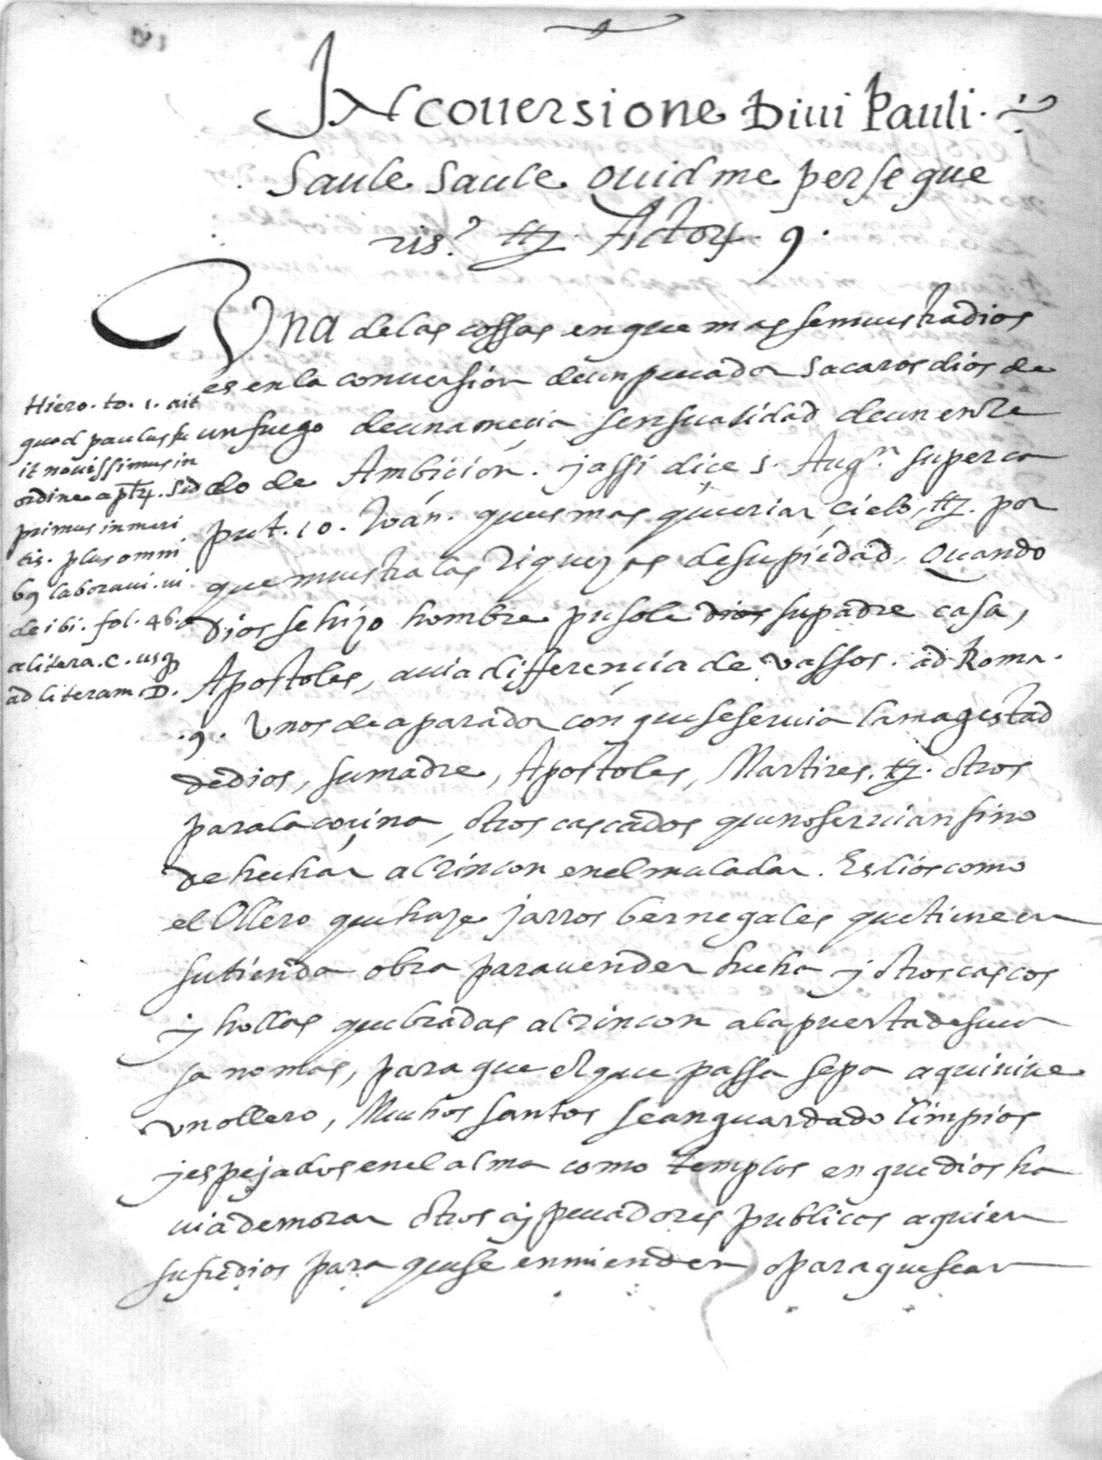 In conversione Divi Pauli.
Saule Saule quid me perseque
ris? etc. Actor. 9.
Una de las cossas en que mas se muestra dios
es en la conversion de un peccador sacaros dios de
un fuego de una mecia sensualidad de un enrre
do de Ambicion. y assi dice S. Aug.n super ca
put. 10. Joan. ques mas que criar cielo, etc. por
que muestra las riquezas de su piedad. Quando
dios se hizo hombre pusole dios su padre casa,
Apostoles, avia differencia de vassos. ad Roma.
.9. Unos de aparador con que se servia la magestad
de dios, su madre, Apostoles, Martires, etc. otros
para la cocina, otros cascados que no servian sino
de hechar al rincon en el muladar. Es dios como
el Ollero que haze jarros bernegales que tiene en
su tienda obra para vender hecha y otros cascos
y hollas quebradas al rincon a la puerta de su ca
sa no mas, para que el que passa sepa aqui vive
un ollero, Muchos santos se an guardado limpios
y espejados en el alma como templos en que dios ha
via de morar otros ay peccadores publicos a quien
sufre dios para que se enmienden o para que sean
Hiero. to. 1. ait
quod paulus fu
it novissimus in
ordine aptor. Sed
primus in meri
tis. plus omni
b9 laboravi. vi
de ibi. fol. 46.
a litera. C. usq
ad literam D.